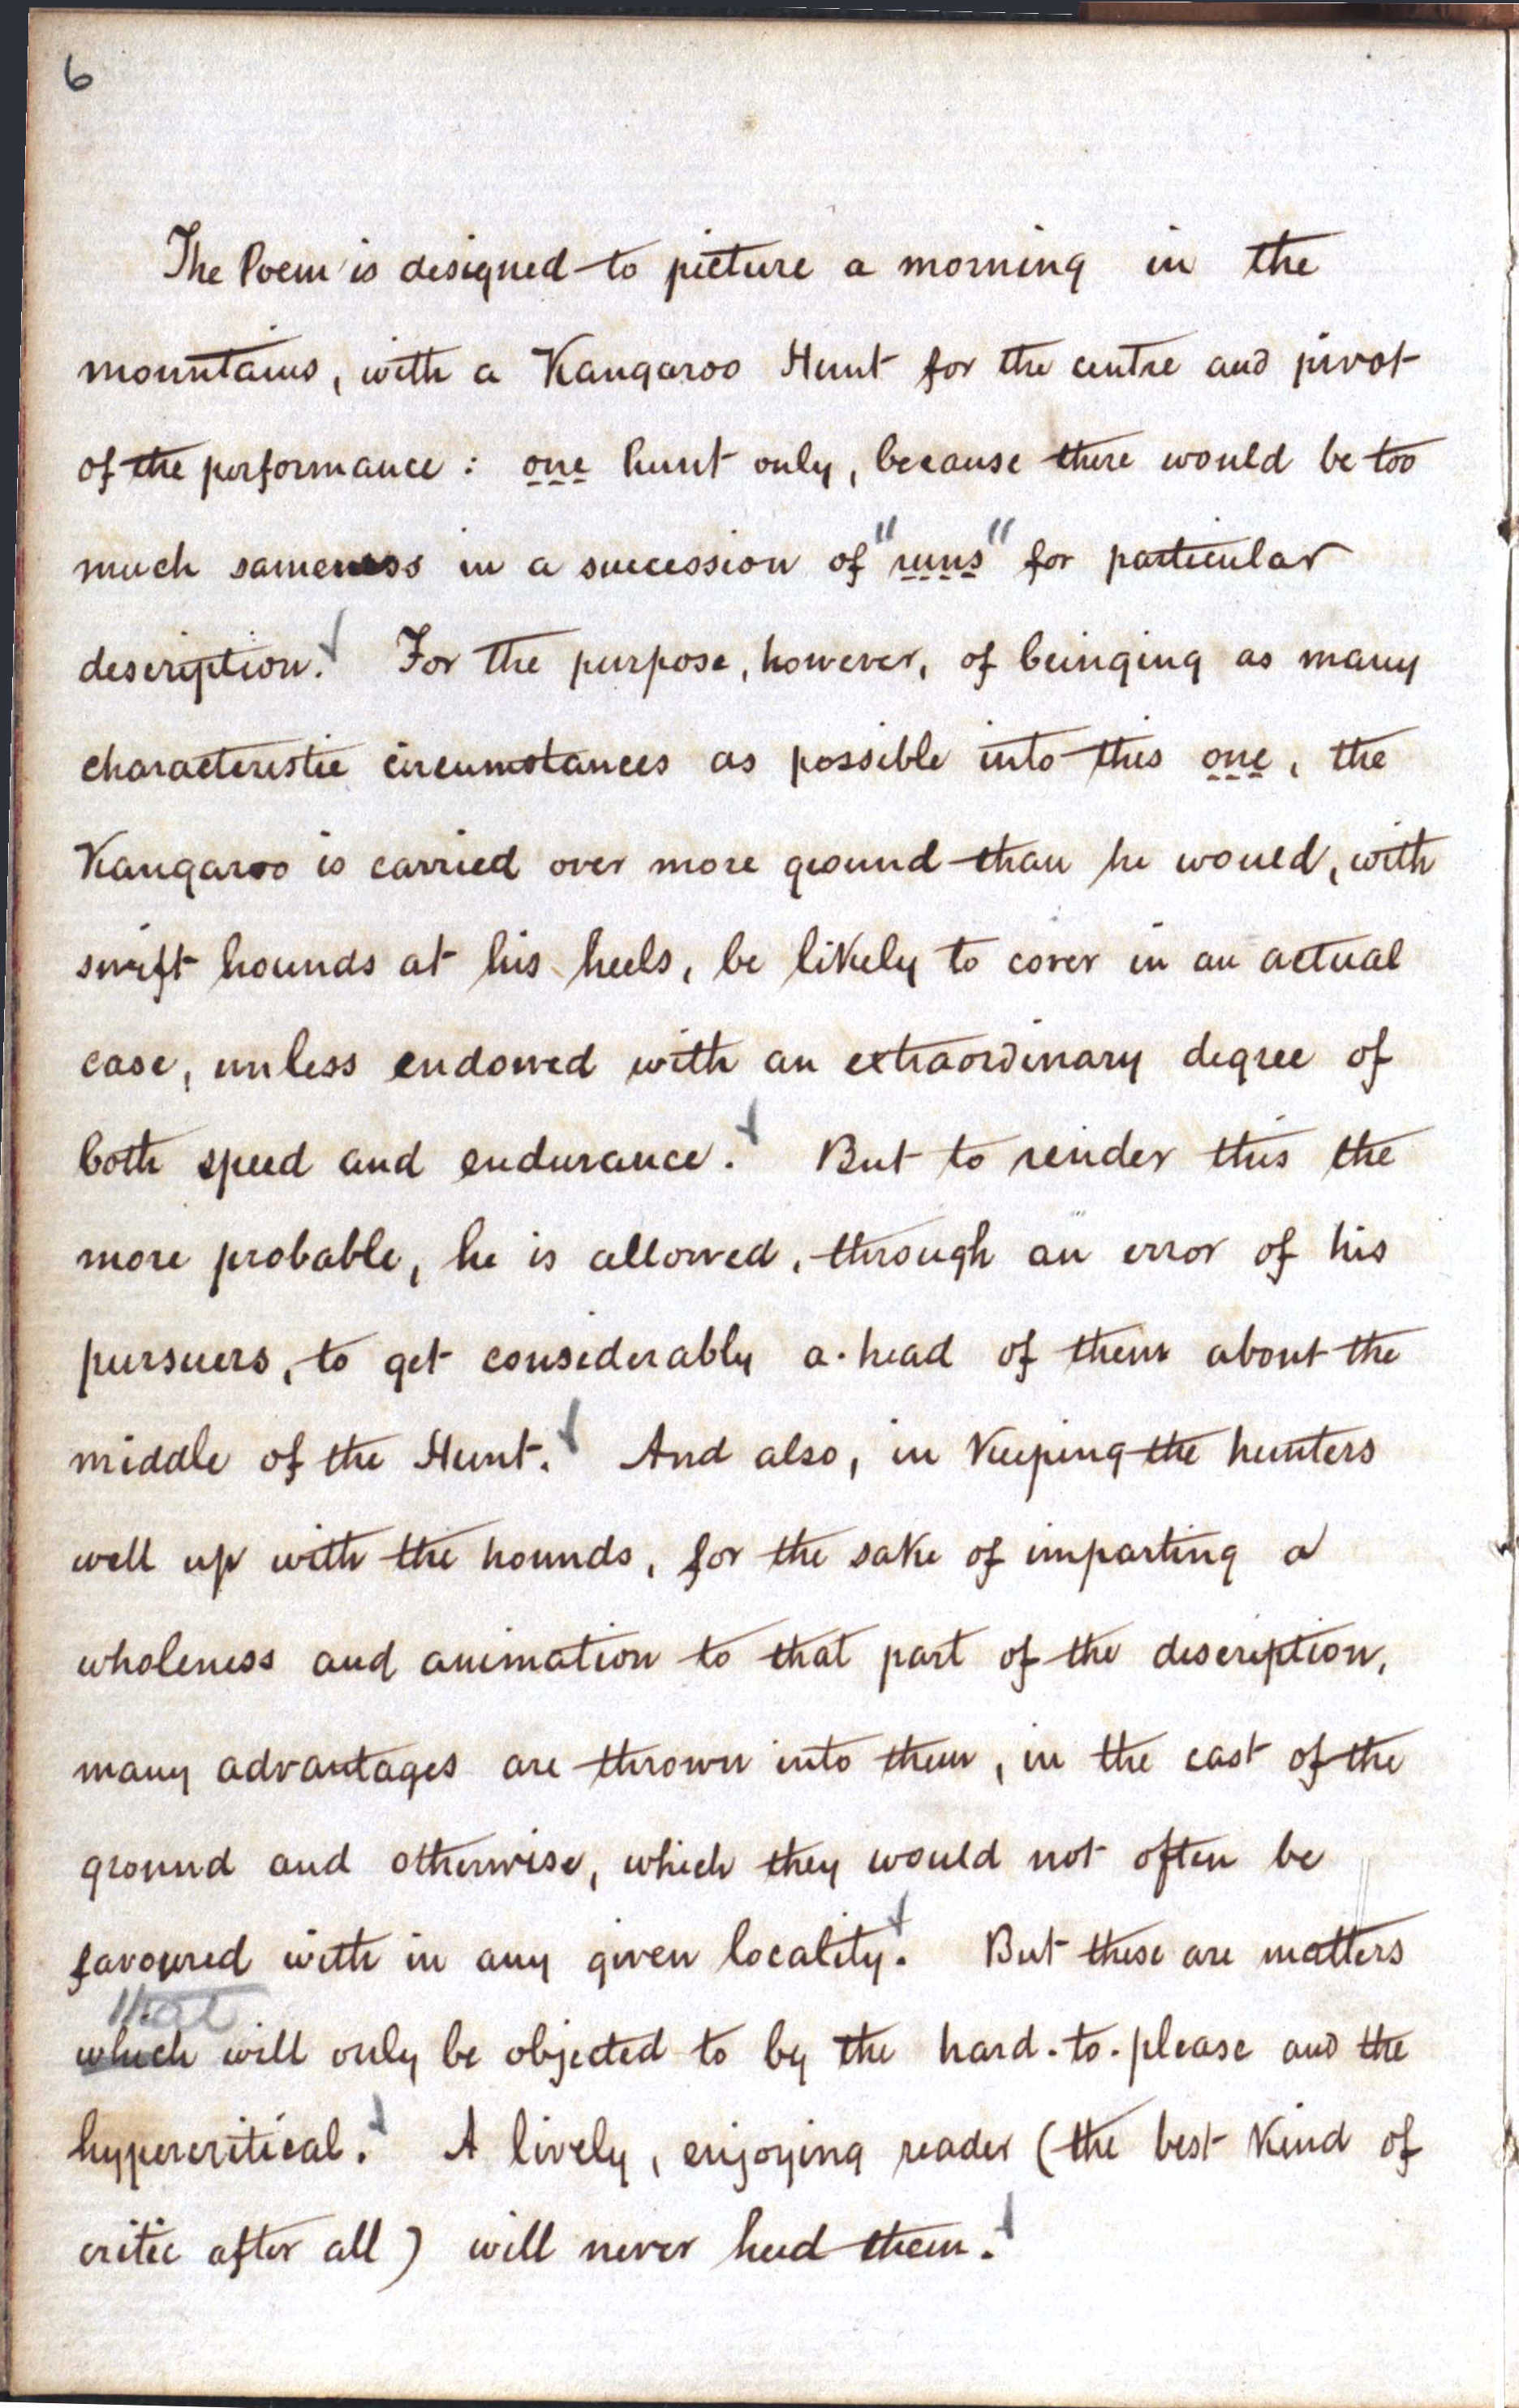 6
The Poem is designed to picture a morning in the
mountains, with a Kangaroo Hunt for the centre and pivot
of the performance: one hunt only, because there would be too
much sameness in a succession of "runs" for particular
description. For the purpose, however, of bringing as many
characteristic circumstances as possible into this one, the
Kangaroo is carried over more ground than he would, with
swift hounds at his heels, be likely to cover in an actual
case, unless endowed with an extraordinary degree of
both speed and endurance. But to render this the
more probable, he is allowed, through an error of his
pursuers, to get considerably a-head of them about the
middle of the Hunt. And also, in keeping the hunters
well up with the hounds, for the sake of imparting a
wholeness and animation to that part of the description,
many advantages are thrown into them, in the cast of the
ground and otherwise, which they would not often be
favoured with in any given locality. But these are matters
that
which will only be objected to by the hard-to-please and the
hypercritical. A lively, enjoying reader (the best kind of
critic after all) will never heed them.